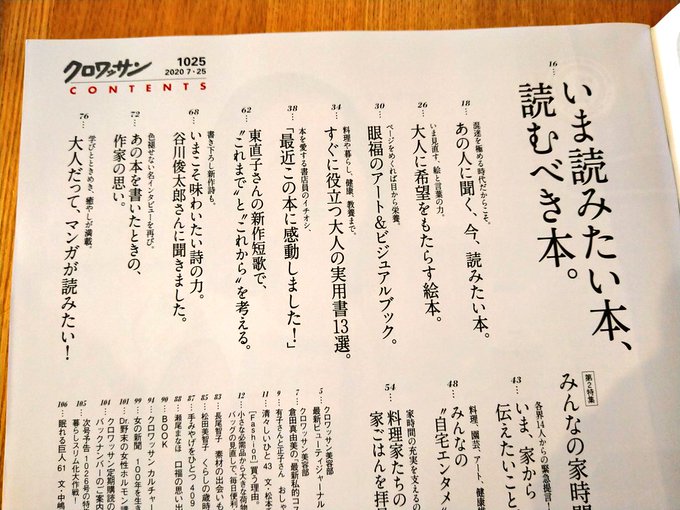 クロワッサン
1025
2020 7・25
CONTENTS
16…
いま読みたい本、
読むべき本。
18…
混迷を極める時代だからこそ。
あの人に聞く、今、読みたい本。
26…
いま見直す、絵と言葉の力。
大人に希望をもたらす絵本。
30…
ページをめくれば目から栄養。
眼福のアート&ビジュアルブック。
34…
料理や暮らし、健康、教養まで、
すぐに役立つ大人の実用書13選。
38…
本を愛する書店員のイチオシ、
「最近この本に感動しました!」
62…
東直子さんの新作短歌で、
“これまで”と“これから”を考える。
68…
書き下ろし新作詩も。
いまこそ味わいたい詩の力。
谷川俊太郎さんに聞きました。
72…
色褪せない名インタビューを再び。
あの本を書いたときの、
作家の思い。
76…
学びとときめき、癒やしが満載。
大人だって、マンガが読みたい!
第2特集
みんなの家時間
43…
各界14人からの緊急提言!
いま、家から
伝えたいこと
48…
料理、園芸、アート、健康
みんなの
“自宅エンタメ”
家時間の充実を支えるの
54…
料理家たちの
家ごはんを拝見
5…
クロワッサン美容部
最新ビューティジャーナル
7…
クロワッサン美容部
倉田真由美の「最新私的コス
9…
有子と左千子の
11…
清々しいひと 43 文・松本
12…
[Fashion] 買う理由。
小さな必需品から大きな荷物
バッグの見直しで、毎日便利
83…
長尾智子 素材の出会いも
85…
松田美智子 くらしの歳時
87…
手みやげをひとつ 409
88…
瀬尾まなほ 口福の思い出
90…
BOOK
91…
クロワッサン カルチャー
99…
女の新聞 100年を生き
101…
Dr.野末の女性ホルモン講
104…
クロワッサン定期購読の
バックナンバーのご案内
105…
次号予告・1026号の特
暮らしスリム化大作戦
106…
眠れる巨人 61 文・中嶋